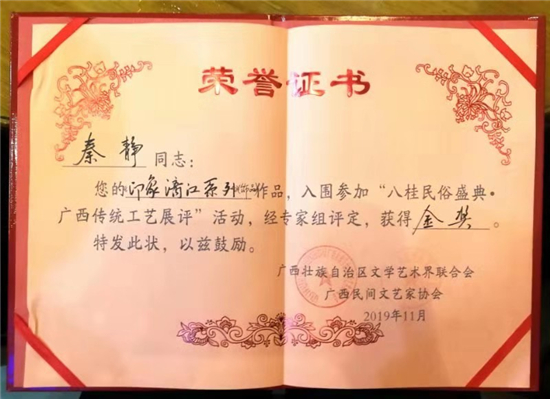 荣誉证书
秦静同志：
您的印象漓江系列作品，入围参加“八桂民俗盛典·
广西传统工艺展评”活动，经专家组评定，获得金奖。
特发此状，以兹鼓励。
广西壮族自治区文学艺术界联合会
广西民间文艺家协会
2019年11月